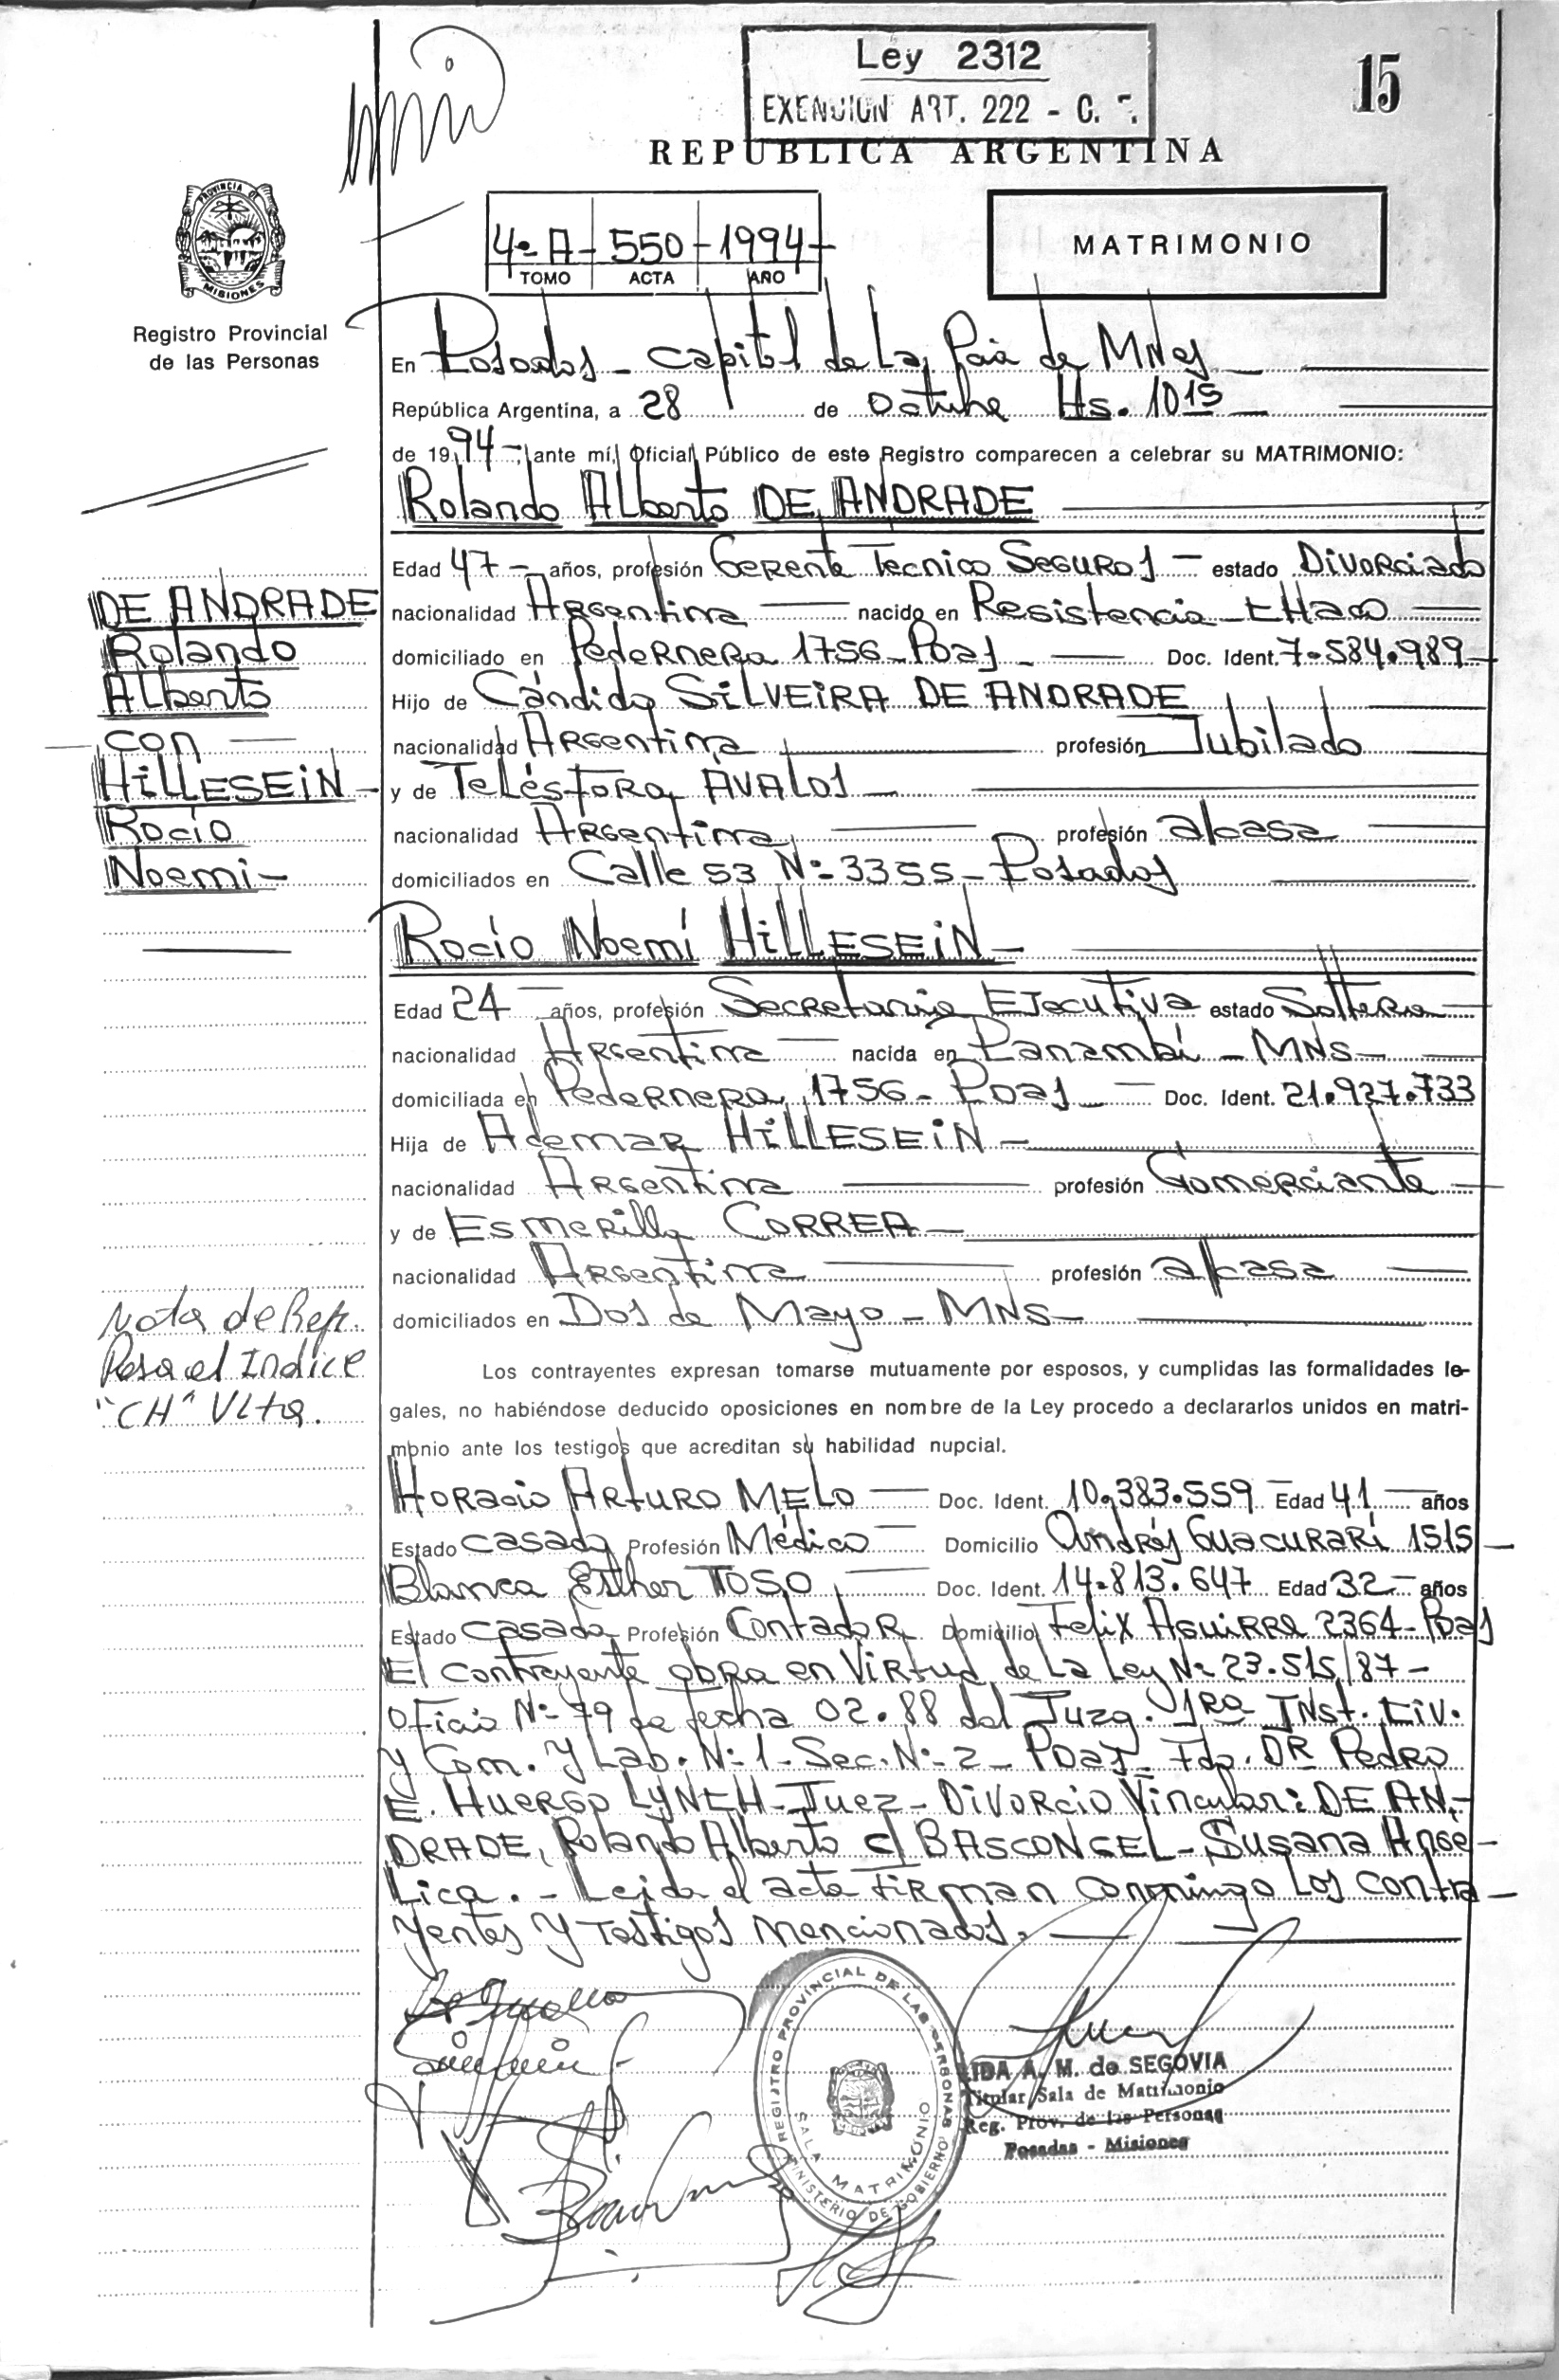 Ley 2312
EXENCION ART. 222 - C. F.
15
REPUBLICA ARGENTINA
PROVINCIA DE
MISIONES
Registro Provincial
de las Personas
4º A - 550 - 1994 -
TOMO ACTA AÑO
MATRIMONIO
En Posadas - Capital de La Pcia de MNes -
República Argentina, a 28 de Octubre Hs. 10 15 -
de 1994 -, ante mí, Oficial Público de este Registro comparecen a celebrar su MATRIMONIO:
Rolando Alberto DE ANDRADE
Edad 47 - años, profesión Gerente Tecnico Seguros - estado Divorciado
nacionalidad Argentina nacido en Resistencia - CHaco
domiciliado en Pedernera 1756 - Pdas - Doc. Ident. 7.584.989 -
Hijo de Cándido SILVEIRA DE ANDRADE
nacionalidad Argentina profesión Jubilado
y de Telésfora ÁVALOS -
nacionalidad Argentina profesión a/casa
domiciliados en Calle 53 Nº 3355 - Posadas
DE ANDRADE
Rolando
Alberto
con
HILLESEIN -
Rocío
Noemi -
Rocío Noemí HILLESEIN -
Edad 24 años, profesión Secretaria Ejecutiva estado Soltera
nacionalidad Argentina nacida en Panambí - MNS -
domiciliada en Pedernera 1756 - Pdas - Doc. Ident. 21.927.733
Hija de Ademar HILLESEIN -
nacionalidad Argentina profesión Comerciante
y de Esmerilla CORREA -
nacionalidad Argentina profesión a/casa
domiciliados en Dos de Mayo - MNS -
Nota de Ref.
Pasa el Indice
"CH" Vlta.
Los contrayentes expresan tomarse mutuamente por esposos, y cumplidas las formalidades le-
gales, no habiéndose deducido oposiciones en nombre de la Ley procedo a declararlos unidos en matri-
monio ante los testigos que acreditan su habilidad nupcial.
Horacio Arturo MELO - Doc. Ident. 10.383.559 Edad 41 años
Estado casado Profesión Médico Domicilio Andrés Guacurarí 1515 -
Blanca Esther TOSO - Doc. Ident. 14.813.647 Edad 32 - años
Estado casada Profesión Contador Domicilio Felix Aguirre 2364 - Pdas
El contrayente obra en Virtud de La Ley Nº 23.515/87 -
Oficio Nº 79 de fecha 02.88 del Juzg. 1ra Inst. Civ.
y Com. y Lab. Nº 1 - Sec. Nº 2 - Pdas - Fdo. DR Pedro
E. HUERGO LYNCH - Juez - Divorcio Vincular: DE AN-
DRADE, Rolando Alberto c/ BASCONCEL - Susana Angé-
lica. - Leida el acta firman conmingo Los contra-
yentes y testigos mencionados. -
REGISTRO PROVINCIAL DE LAS PERSONAS
SALA MATRIMONIO
MINISTERIO DE GOBIERNO
LIDA A. M. de SEGOVIA
Titular Sala de Matrimonio
Reg. Prov. de las Personas
Posadas - Misiones